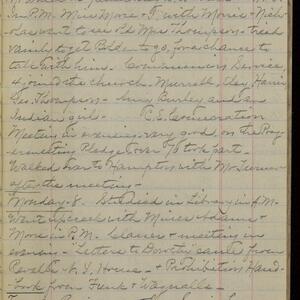 In P.M. Miss Moore + I, with Morris Nich-
olas went to see old Mrs Thompson - tried
vainly to get Polden to go, for a chance to
talk with him. Communion Service,
4 joined the church, Murrell, Clay, Harris
Geo. Thompson - Amy Burley and an
Indian girl. C.E. Consecration
Meeting in evening, very good, on the Pray-
er meeting Pledge. Over 70 took part.
Walked far to Hampton with Mr. Turner
after the meeting -
Monday - 8. Studied in Library in A.M.
Went up creek with Misses Adams +
Moore in P.M. Leaver + meeting in
evening - "Letters to Dorothy" came from
Revell + N.Y. House - + Prohibition Hand-
book from Funk + Wagnalls -